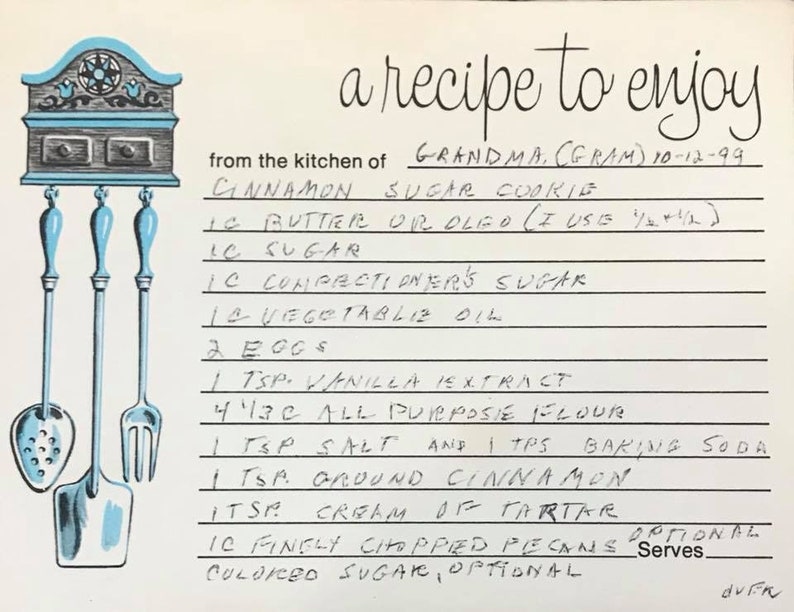 a recipe to enjoy
from the kitchen of GRANDMA. (GRAM) 10-12-99
CINNAMON SUGAR COOKIE
1C BUTTER OR OLEO (I USE 1/2 + 1/2)
1C SUGAR
1C CONFECTIONER'S SUGAR
1C VEGETABLE OIL
2 EGGS
1 TSP. VANILLA EXTRACT
4 1/3 C ALL PURPOSE FLOUR
1 TSP SALT AND 1 TPS BAKING SODA
1 TSP. GROUND CINNAMON
1 TSP. CREAM OF TARTAR
1C FINELY CHOPPED PECANS OPTIONAL
Serves
COLORED SUGAR, OPTIONAL
OVER